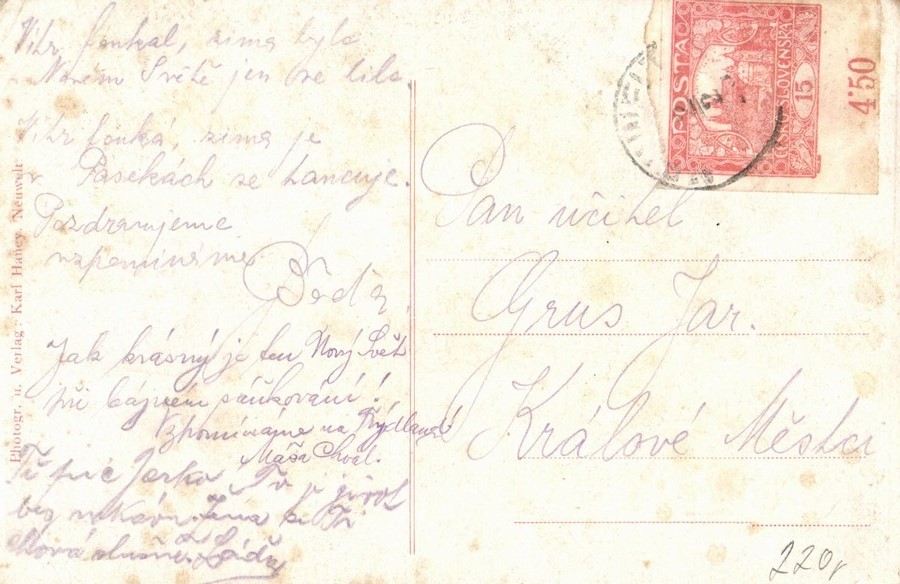 Vítr foukal, zima byla
Novém Světě jen se bílo.
Vítr fouká, zima je
v Pasekách se tancuje.
Pozdravujeme
vzpomínáme
Böďa
Jak krásný je ten Nový Svět
při bájném sáňkování!
Vzpomínáme na Frýdland
Máša Chval.
Jarko To je život
bez
Žena se Ti
slušně Láďa
Photogr. u. Verlag: Karl Haney, Neuwelt
POŠTA
ČESKO-SLOVENSKÁ
15
4'50
Pan učitel
Grus Jar.
Králové Městec
220,